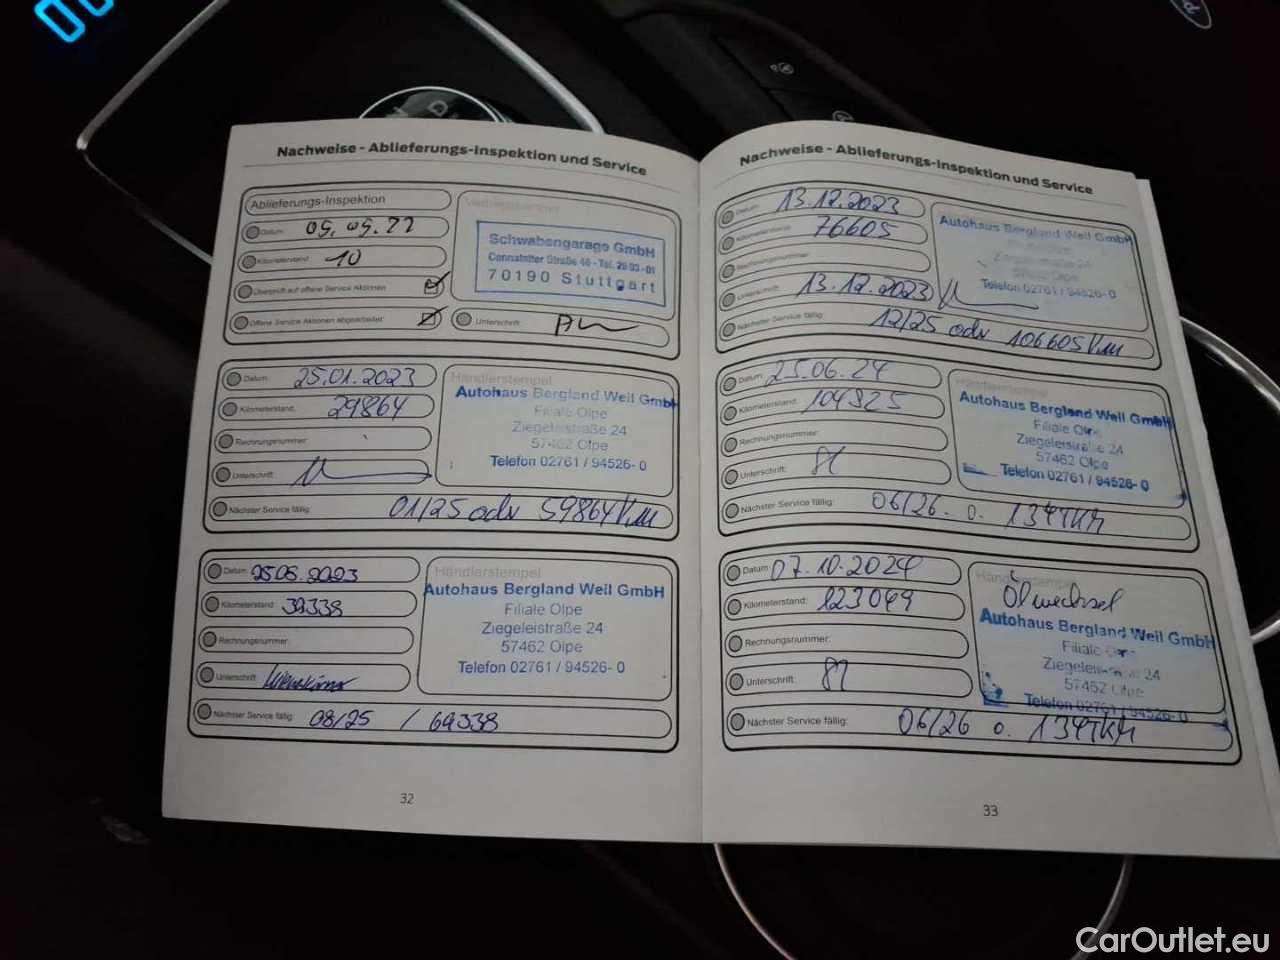 Nachweise - Ablieferungs-Inspektion und Service
Ablieferungs-Inspektion
Datum: 09.09.22
Kilometerstand: 10
Überprüft auf offene Service Aktionen
Offene Service Aktionen abgearbeitet
Unterschrift:
Schwabengarage GmbH
Cannstatter Straße 46 - Tel. 28 03-01
70190 Stuttgart
Datum: 25.01.2023
Kilometerstand: 29864
Rechnungsnummer:
Unterschrift:
Nächster Service fällig: 01/25 odr 59864 Km
Händlerstempel
Autohaus Bergland Weil GmbH
Filiale Olpe
Ziegeleistraße 24
57462 Olpe
Telefon 02761 / 94526- 0
Datum: 25.08.2023
Kilometerstand: 39338
Rechnungsnummer:
Unterschrift:
Nächster Service fällig: 08/25 / 69338
Händlerstempel
Autohaus Bergland Weil GmbH
Filiale Olpe
Ziegeleistraße 24
57462 Olpe
Telefon 02761 / 94526- 0
32
Nachweise - Ablieferungs-Inspektion und Service
Datum: 13.12.2023
Kilometerstand: 76605
Rechnungsnummer:
Unterschrift: 13.12.2023
Nächster Service fällig: 12/25 odr 106605 Km
Autohaus Bergland Weil GmbH
Telefon 02761 / 94526- 0
Datum: 25.06.24
Kilometerstand: 104325
Rechnungsnummer:
Unterschrift:
Nächster Service fällig: 06/26 o. 134TKM
Händlerstempel
Autohaus Bergland Weil GmbH
Filiale Olpe
Ziegeleistraße 24
57462 Olpe
Telefon 02761 / 94526- 0
Datum: 07.10.2024
Kilometerstand: 123049
Rechnungsnummer:
Unterschrift:
Nächster Service fällig: 06/26 o. 134TKM
Händlerstempel
Ölwechsel
Autohaus Bergland Weil GmbH
Filiale Olpe
Ziegeleistraße 24
57462 Olpe
Telefon 02761 / 94526- 0
33
CarOutlet.eu